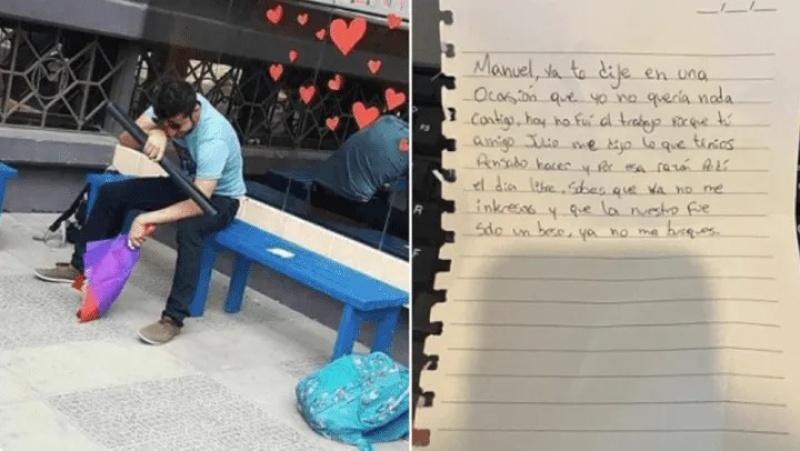 __/__/__
Manuel, ya te dije en una
Ocasión que yo no quería nada
contigo, hoy no fui al trabajo porque tú
amigo Julio me dijo lo que tenías
Pensado hacer y por esa razón Pedí
el día libre. Sabes que ya no me
interesas y que lo nuestro fue
solo un beso, ya no me busques.